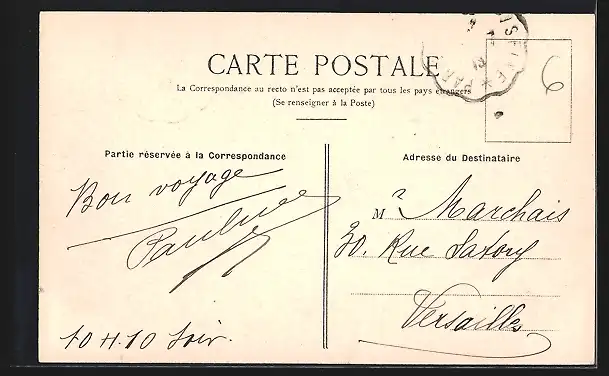 CARTE POSTALE
La Correspondance au recto n'est pas acceptée par tous les pays étrangers
(Se renseigner à la Poste)
6
Partie réservée à la Correspondance
Bon voyage
Pauline
10 H. 10 Soir.
Adresse du Destinataire
M r Marchais
30. Rue Satory
Versailles